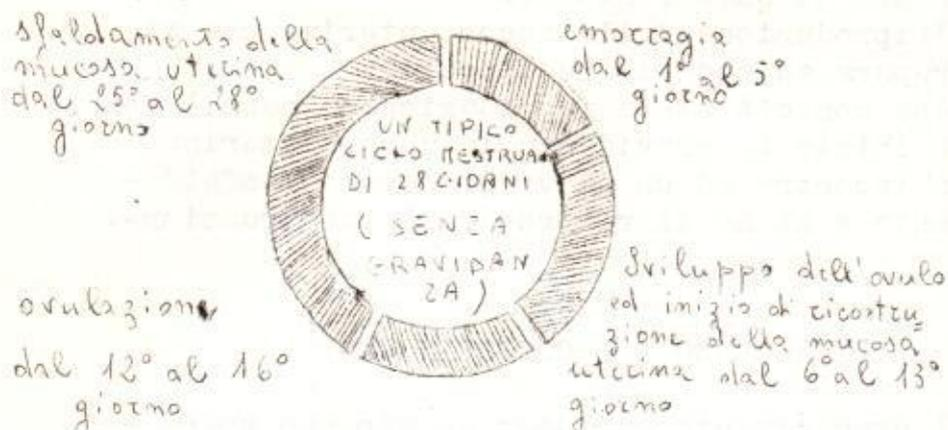 sfaldamento della
mucosa uterina
dal 25° al 28°
giorno
emorragia
dal 1° al 5°
giorno
UN TIPICO
CICLO MESTRUA
DI 28 GIORNI
( SENZA
GRAVIDAN
ZA )
ovulazione
dal 12° al 16°
giorno
Sviluppo dell'ovulo
ed inizio di ricostru
zione della mucosa
uterina dal 6° al 13°
giorno